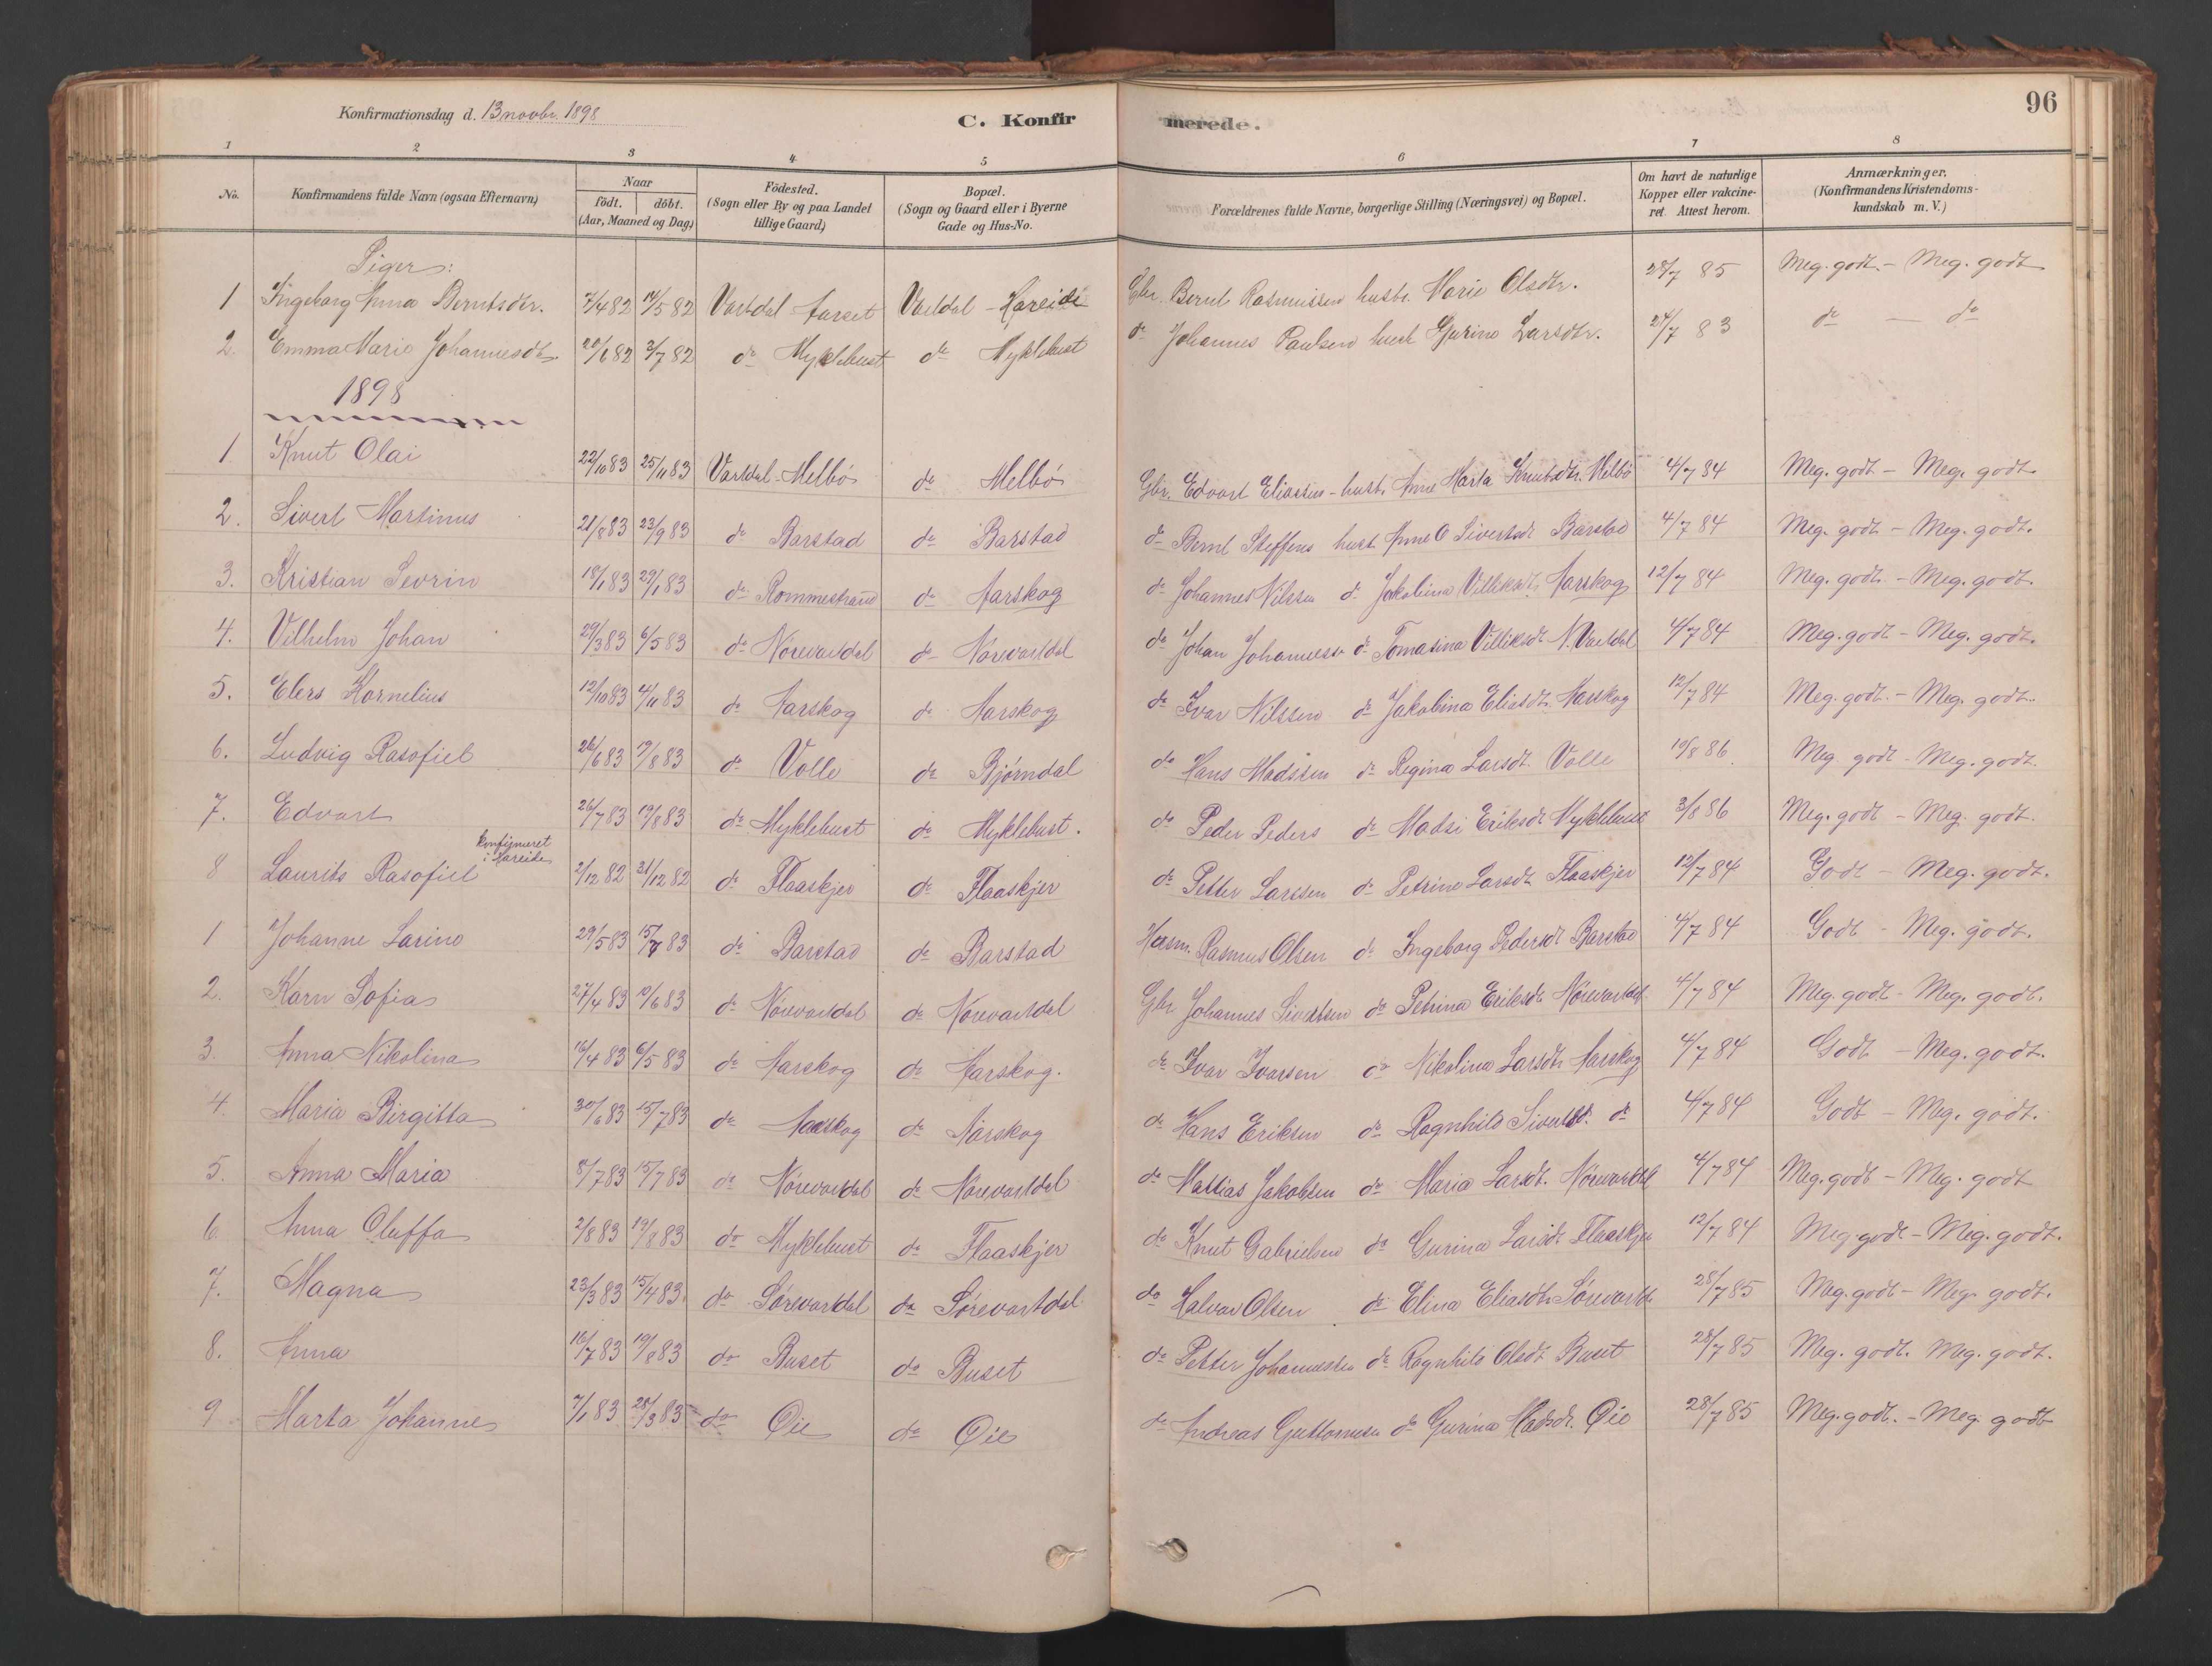 Konfirmationsdag d. 13 novbr. 1898
C. Konfirmerede.
96
1 2 3 4 5 6 7 8
No.
Konfirmandens fulde Navn (ogsaa Efternavn)
Naar
födt. döbt.
(Aar, Maaned og Dag)
Födested.
(Sogn eller By og paa Landet
tillige Gaard)
Bopæl.
(Sogn og Gaard eller i Byerne
Gade og Hus-No.
Forældrenes fulde Navne, borgerlige Stilling (Næringsvei) og Bopæl.
Om havt de naturlige
Kopper eller vakcine-
ret. Attest herom.
Anmærkninger.
(Konfirmandens Kristendoms-
kundskab m. V.)
Piger:
1 Ingeborg Anna Berntsdtr. 7/4 82 14/5 82 Vartdal Aarset Vartdal - Hareide Gbr. Bernt Rasmussen hustr. Marie Olsdtr. 28/7 85 Meg. godt - Meg. godt
2. Emma Marie Johannesdtr. 20/6 82 2/7 82 do Myklebust do Myklebust do Johannes Paulsen hust Gjurine Larsdtr. 24/7 83 do — do
1898
1 Knut Olai 22/10 83 25/11 83 Vartdal - Melbø do Melbø Gbr. Edvart Eliassen - hust. Anne Marta Knutsdtr. Melbø 4/7 84 Meg. godt - Meg. godt
2. Sivert Martinus 21/8 83 23/9 83 do Barstad do Barstad do Bernt Steffens hust Anne O Sivertsdt Barstad 4/7 84 Meg. godt - Meg. godt.
3. Kristian Sevrin 18/1 83 29/1 83 do Rommestrand do Aarskog do Johannes Nilssen do Jakobina Villiksdt. Aarskog 12/7 84 Meg. godt - Meg. godt.
4. Vilhelm Johan 29/3 83 6/5 83 do Nørevartdal do Nørevartdal do Johan Johannessen do Tomasina Villiksdt N. Vartdal 4/7 84 Meg. godt - Meg. godt.
5. Elers Kornelius 12/10 83 4/11 83 do Aarskog do Aarskog do Ivar Nilssen do Jakobina Eliasdt. Aarskog 12/7 84 Meg. godt. - Meg. godt.
6. Ludvig Rasofiel 26/6 83 19/8 83 do Volle do Bjørndal do Hans Madssen do Regina Larsdt. Volle 10/8 86. Meg godt - Meg. godt.
7. Edvart 26/7 83 19/8 83 do Myklebust do Myklebust. do Peder Peders do Madsi Eriksdt Myklebust 3/8 86 Meg. godt - Meg. godt.
8 Laurits Rasofiel konfirmeret i Hareide 2/12 82 31/12 82 do Flaaskjer do Flaaskjer do Petter Larssen do Petrine Larsdt Flaaskjer 12/7 84 Godt - Meg. godt.
1 Johanne Larine 29/5 83 15/7 83 do Barstad do Barstad Husm. Rasmus Olsen do Ingeborg Pedersdt Barstad 4/7 84 Godt - Meg. godt.
2. Karn Sofia 27/4 83 10/6 83 do Nørevartdal do Nørevartdal Gbr Johannes Sivertsen do Petrina Eriksdt. Nørevartdal 4/7 84 Meg. godt - Meg. godt.
3. Anna Nikolina 16/4 83 6/5 83 do Aarskog do Aarskog. do Ivar Ivarsen do Nikolina Larsdt. Aarskog 4/7 84 Godt - Meg. godt.
4. Maria Birgitta 30/6 83 15/7 83 do Aarskog do Aarskog do Hans Eriksen do Ragnhild Sivertsd. do 4/7 84 Godt - Meg. godt.
5. Anna Maria 8/7 83 15/7 83 do Nørevartdal do Nørevartdal do Mattias Jakobsen do Maria Larsdt. Nørevartdal 4/7 84 Meg. godt - Meg. godt
6 Anna Oluffa 2/8 83 19/8 83 do Myklebust do Flaaskjer do Knut Gabrielsen do Gurina Larsdt. Flaaskjer 12/7 84 Meg. godt - Meg. godt.
7. Magna 23/3 83 15/4 83 do Sørevartdal do Sørevartdal do Halvar Olsen do Elina Eliasdt. Sørevartd. 28/7 85 Meg. godt - Meg godt.
8. Anna 16/7 83 19/8 83 do Buset do Buset do Petter Johannessen do Ragnhild Olsdt Buset 28/7 85 Meg. godt. Meg. godt.
9 Marta Johanne 7/1 83 28/3 83 do Øie do Øie do Andreas Guttormsen do Gurina Madsdt. Øie 28/7 85 Meg. godt. - Meg. godt